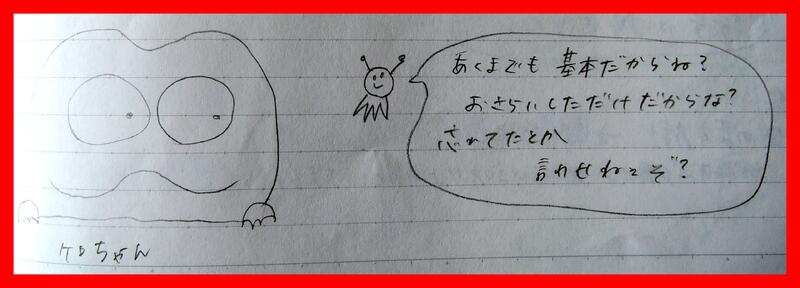 あくまでも基本だからね?
おさらいしただけだからな?
忘れてたとか
言わせねぞ?
ケロちゃん